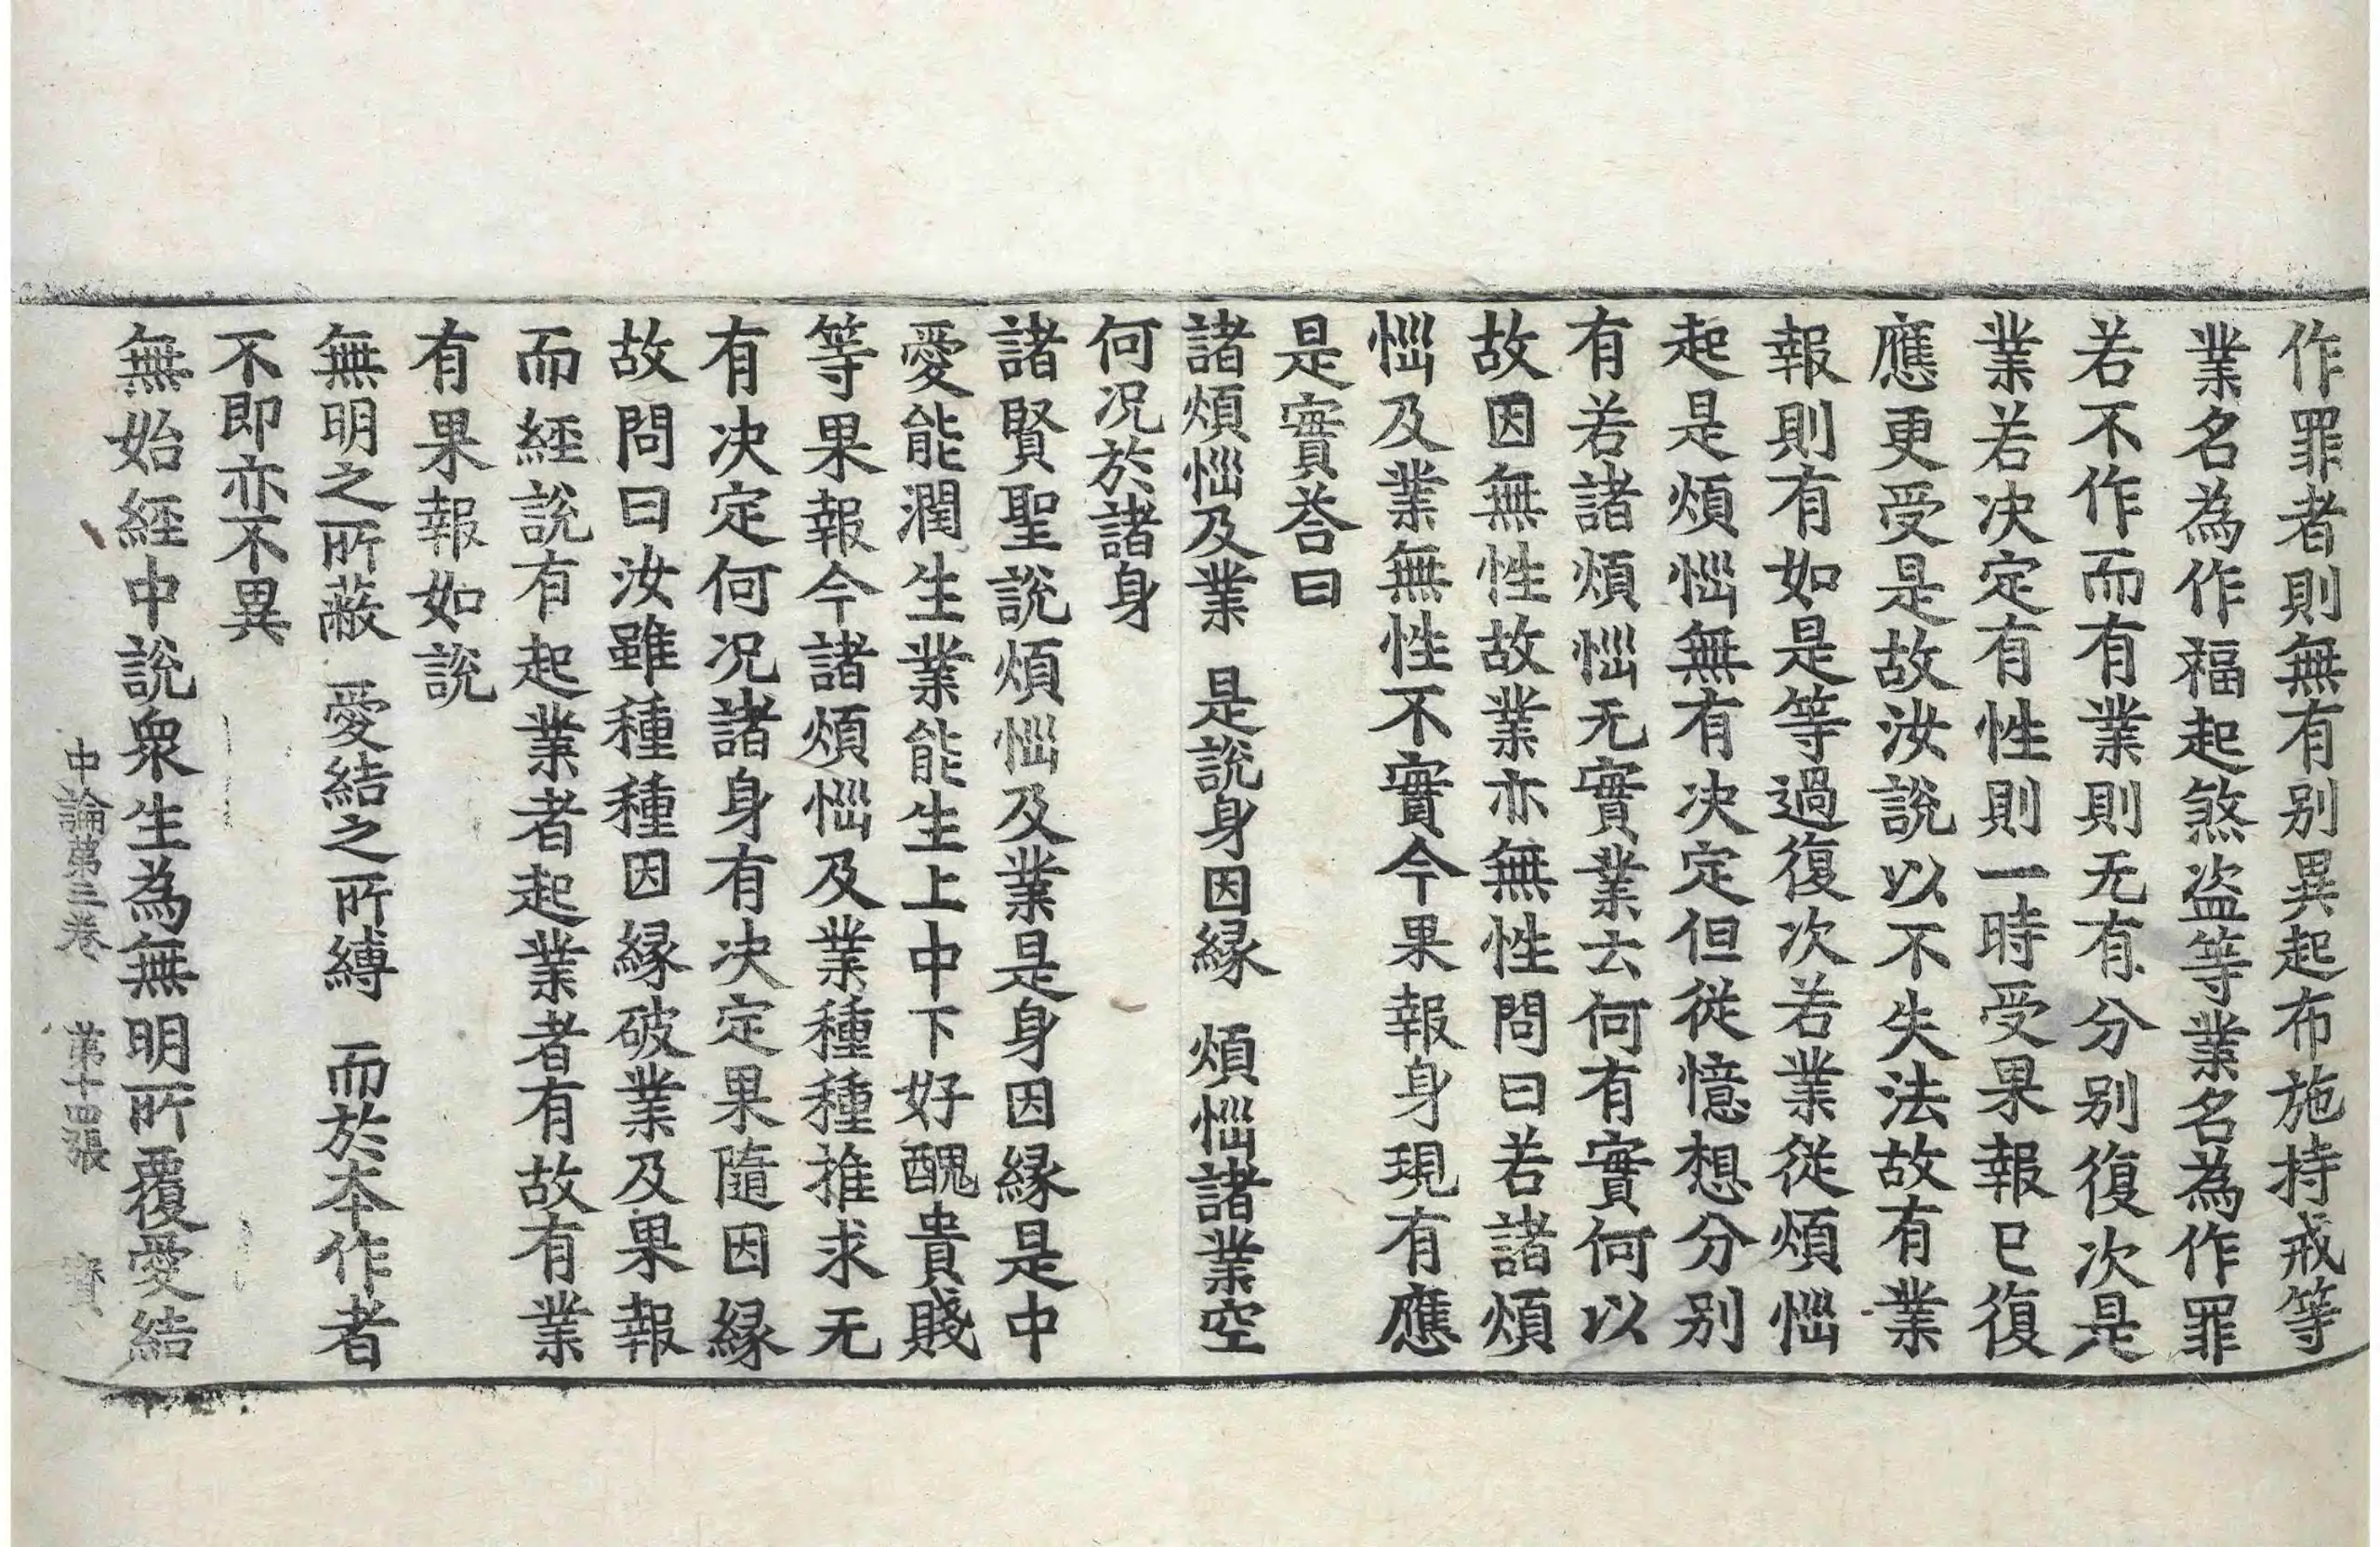 作罪者則無有別異起布施持戒等
業名為作福起煞盗等業名為作罪
若不作而有業則无有分別復次是
業若决定有性則一時受果報已復
應更受是故汝說以不失法故有業
報則有如是等過復次若業從煩惱
起是煩惱無有决定但從憶想分別
有若諸煩惱无實業云何有實何以
故因無性故業亦無性問曰若諸煩
惱及業無性不實今果報身現有應
是實荅曰
諸煩惱及業 是說身因緣 煩惱諸業空
何况於諸身
諸賢聖說煩惱及業是身因緣是中
愛能潤生業能生上中下好醜貴賤
等果報今諸煩惱及業種種推求无
有决定何况諸身有决定果隨因緣
故問曰汝雖種種因緣破業及果報
而經說有起業者起業者有故有業
有果報如說
無明之所蔽 愛結之所縛 而於本作者
不即亦不異
無始經中說衆生為無明所覆愛結
中論第三卷 第十四張 寶